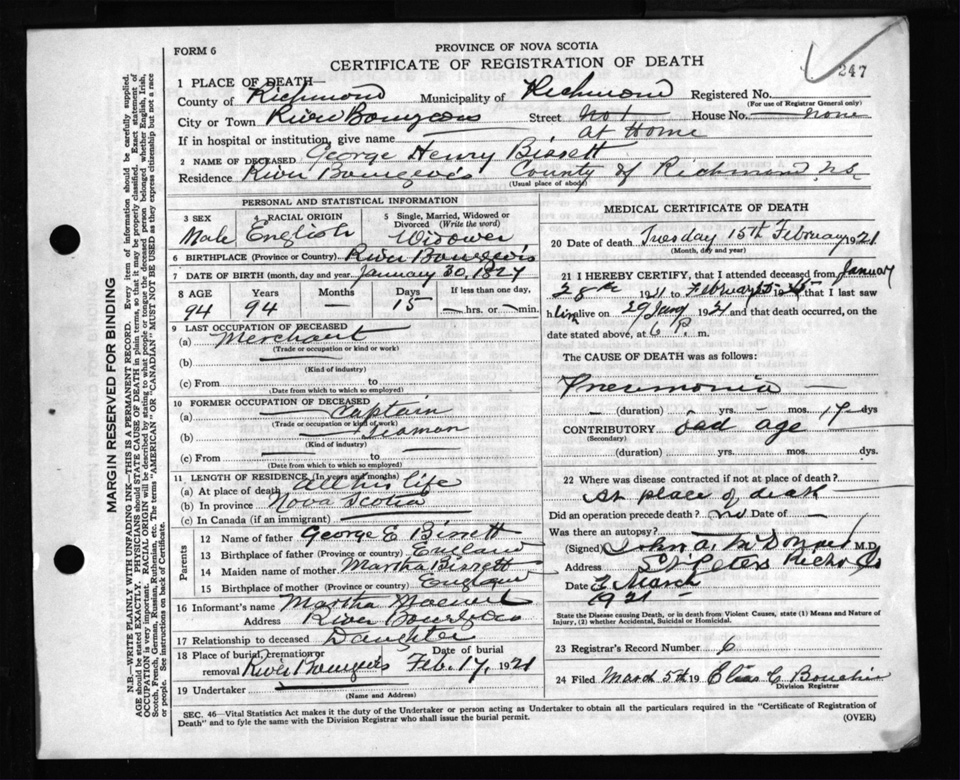 FORM 6
PROVINCE OF NOVA SCOTIA
CERTIFICATE OF REGISTRATION OF DEATH
247
1 PLACE OF DEATH—
County of Richmond Municipality of Richmond Registered No.
(For use of Registrar General only)
City or Town River Bourgeois Street No 1 House No. none
If in hospital or institution, give name at Home
2 NAME OF DECEASED George Henry Bissett
Residence River Bourgeois County of Richmond N.S.
(Usual place of abode)
PERSONAL AND STATISTICAL INFORMATION
3 SEX Male
4 RACIAL ORIGIN English
5 Single, Married, Widowed or Divorced (Write the word) Widower
6 BIRTHPLACE (Province or Country) River Bourgeois
7 DATE OF BIRTH (month, day and year) January 30, 1827
8 AGE Years Months Days If less than one day,
94 94 — 15 — hrs. or — min.
9 LAST OCCUPATION OF DECEASED
(a) Merchant
(Trade or occupation or kind or work)
(b)
(Kind of industry)
(c) From to
(Date from which to which so employed)
10 FORMER OCCUPATION OF DECEASED
(a) Captain
(Trade or occupation or kind of work)
(b) Seaman
(Kind of industry)
(c) From to
(Date from which to which so employed)
11 LENGTH OF RESIDENCE (In years and months)
(a) At place of death All his life
(b) In province Nova Scotia
(c) In Canada (if an immigrant)
Parents
12 Name of father George E Bissett
13 Birthplace of father (Province or country) England
14 Maiden name of mother Martha Bissett
15 Birthplace of mother (Province or country) England
16 Informant's name Martha
Address River Bourgeois
17 Relationship to deceased Daughter
18 Place of burial, cremation or removal River Bourgeois Date of burial Feb. 17, 1921
19 Undertaker
(Name and Address)
MEDICAL CERTIFICATE OF DEATH
20 Date of death Tuesday 15th February 1921
(Month, day and year)
21 I HEREBY CERTIFY, that I attended deceased from January
28th 1921 to February 15 that I last saw
him alive on 29 Jany 1921 and that death occurred, on
date stated above, at 6 P. m.
The CAUSE OF DEATH was as follows:
Pneumonia
— (duration) yrs. mos. 17 dys
CONTRIBUTORY old age
(Secondary)
(duration) yrs. mos. dys.
22 Where was disease contracted if not at place of death?
At place of death
Did an operation precede death? no Date of —
Was there an autopsy?
(Signed) John A. M.D.
Address St Peters Rich Co
Date 3 March
1921
State the Disease causing Death, or in death from Violent Causes, state (1) Means and Nature of Injury, (2) whether Accidental, Suicidal or Homicidal.
23 Registrar's Record Number 6
24 Filed March 5th 19 Elias C Bouchie
Division Registrar
SEC. 46—Vital Statistics Act makes it the duty of the Undertaker or person acting as Undertaker to obtain all the particulars required in the "Certificate of Registration of
Death" and to fyle the same with the Division Registrar who shall issue the burial permit.
(OVER)
MARGIN RESERVED FOR BINDING
N.B.—WRITE PLAINLY WITH UNFADING INK—THIS IS A PERMANENT RECORD. Every item of information should be carefully supplied.
AGE should be stated EXACTLY. PHYSICIANS should STATE CAUSE OF DEATH in plain terms, so that it may be properly classified. Exact statement of
OCCUPATION is very important. RACIAL ORIGIN will be described by stating to what people or tongue the deceased person belonged whether English, Irish,
Scotch, French, German, Russian, Ruthenian, etc. The terms "AMERICAN" or "CANADIAN" MUST NOT BE USED as they express citizenship but not a race
or people. See instructions on back of Certificate.